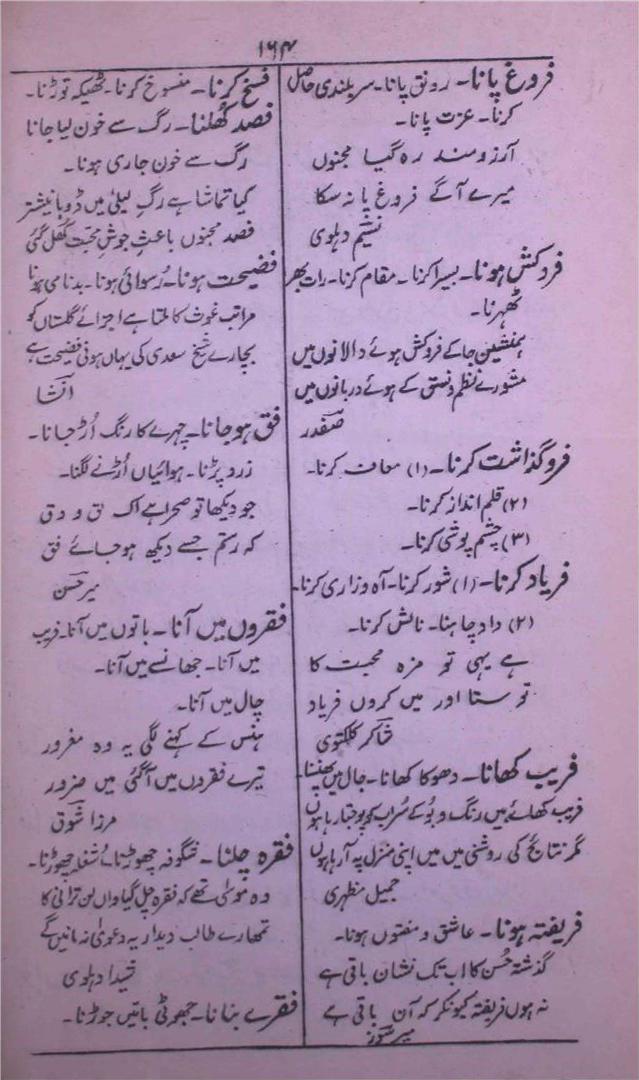 ۱۶۴
فروغ پانا۔ رونق پانا۔ سربلندی حاصل
کرنا۔ عزت پانا۔
آرزو مند رہ گیا مجنوں
میرے آگے فروغ پا نہ سکا
نسیم دہلوی
فروکش ہونا۔ بسیرا کرنا۔ مقام کرنا۔ رات بھر
ٹھہرنا۔
ہمنشین جا کے فروکش ہوئے دالانوں میں
مشورے نظم و نسق کے ہوئے دربانوں میں
صفدر
فروگذاشت کرنا۔ (۱) معاف کرنا۔
(۲) قلم انداز کرنا۔
(۳) چشم پوشی کرنا۔
فریاد کرنا۔ (۱) شور کرنا۔ آہ و زاری کرنا۔
(۲) داد چاہنا۔ نالش کرنا۔
ہے یہی تو مزہ محبت کا
تو ستا اور میں کروں فریاد
شاکر کلکتوی
فریب کھانا۔ دھوکا کھانا۔ جال میں پھنسنا۔
فریب کھائے ہیں رنگ و بو کے سراب کو پوجتا رہا ہوں
مگر نتائج کی روشنی میں میں اپنی منزل پہ آ رہا ہوں
جمیل مظہری
فریفتہ ہونا۔ عاشق و مفتوں ہونا۔
گذشتہ حُسن کا اب تک نشان باقی ہے
نہ ہوں فریفتہ کیونکر کہ آن باقی ہے
میر سوز
فسخ کرنا۔ منسوخ کرنا۔ ٹھیکہ توڑنا۔
فصد کُھلنا۔ رگ سے خون لیا جانا
رگ سے خون جاری ہونا۔
کیا تماشا ہے رگِ لیلیٰ میں ڈوبا نیشتر
فصد مجنوں باعثِ جوشِ محبت کُھل گئی
فضیحت ہونا۔ رُسوائی ہونا۔ بدنامی ہونا
مراتب غوث کا ملتا ہے اجزائے گلستاں کو
بچارے شیخ سعدی کی یہاں ہوئی فضیحت ہے
انشا
فق ہو جانا۔ چہرے کا رنگ اُڑ جانا۔
زرد پڑنا۔ ہوائیاں اُڑنے لگنا۔
جو دیکھا تو صحرا ہے اک لق و دق
کہ رستم جسے دیکھ ہو جائے فق
میر حسن
فقروں میں آنا۔ باتوں میں آنا۔ فریب
میں آنا۔ جھانسے میں آنا۔
چال میں آنا۔
ہنس کے کہنے لگی یہ وہ مغرور
تیرے فقروں میں آ گئی میں ضرور
مرزا شوق
فقرہ چلنا۔ شگوفہ چھوڑنا۔ شغلہ چھوڑنا۔
وہ موسیٰ تھے کہ فقرہ چل گیا واں لن ترانی کا
تمھارے طالب دیدار یہ دعویٰ نہ مانیں گے
شیدا دہلوی
فقرے بنانا۔ جھوٹی باتیں جوڑنا۔